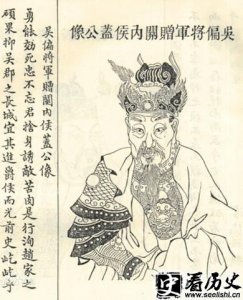 吳偏將軍贈關內侯蓋公像
吳偏將軍贈關內侯蓋公像
勇能効死忠不忘君捨身誘敵苦肉是行洵趙家之
碩果抑吳郡之長城宜其進爵侯而光前史屹屹乎
看历史
www.seelishi.cn